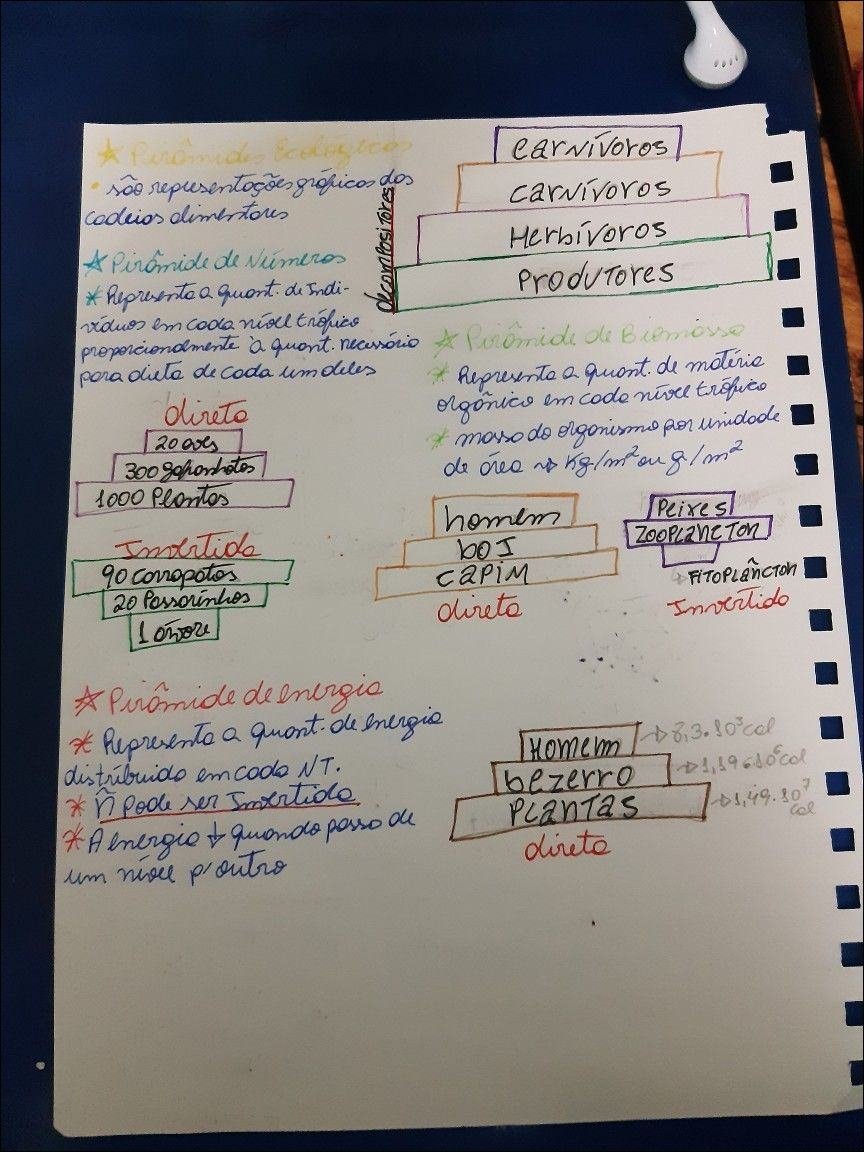 ★ Pirâmides Ecológicas
• são representações gráficas das
cadeias alimentares
Carnívoros
carnívoros
Herbívoros
Produtores
decompositores
★ Pirâmide de Números
* Representa a quant. de Indi-
víduos em cada nível trófico
proporcionalmente à quant. necessária
para dieta de cada um deles
direta
20 aves
300 gafanhotos
1000 Plantas
Invertida
90 carrapatos
20 Passarinhos
1 árvore
★ Pirâmide de Biomassa
* Representa a quant. de matéria
orgânica em cada nível trófico
* massa do organismo por unidade
de área → Kg/m² ou g/m²
homem
boi
capim
direta
Peixes
zooplâncton
Fitoplâncton
Invertida
★ Pirâmide de energia
* Representa a quant. de energia
distribuída em cada NT.
* Ñ Pode ser Invertida
* A energia ↓ quando passa de
um nível p/ outro
Homem → 8,3.10³ cal
bezerro → 1,19.10⁶ cal
Plantas → 1,49.10⁷ cal
direta